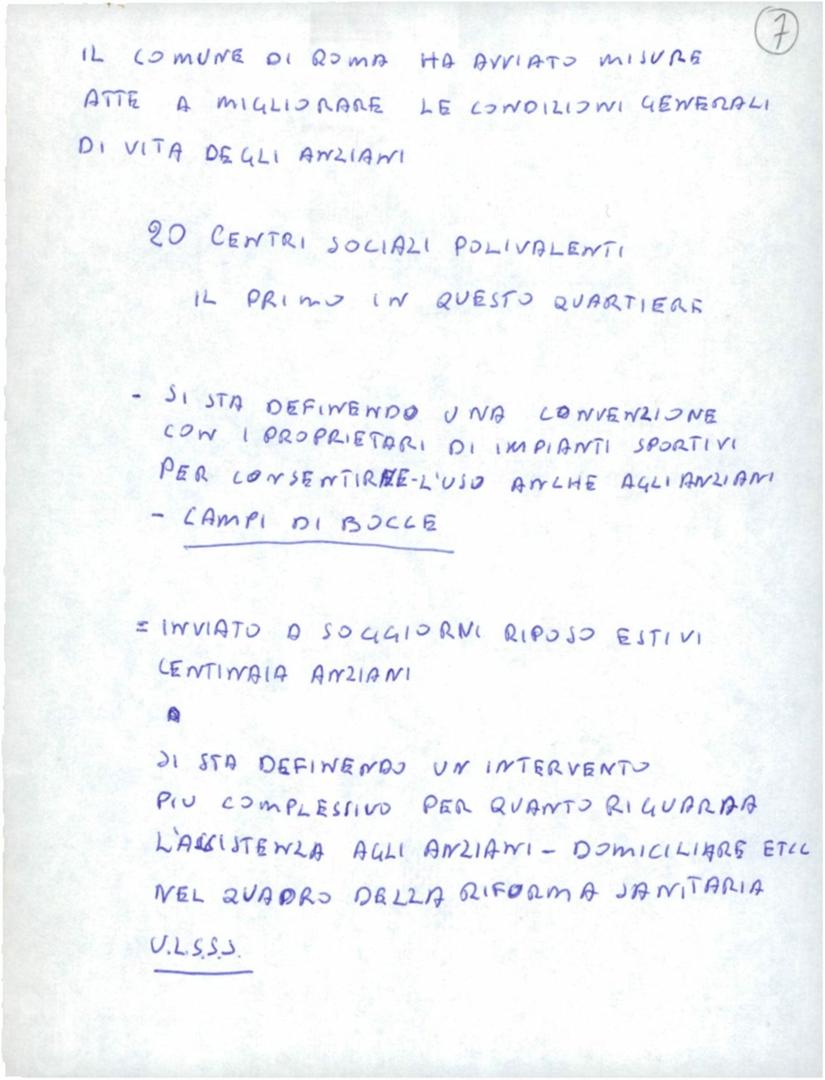 7
IL COMUNE DI ROMA HA AVVIATO MISURE
ATTE A MIGLIORARE LE CONDIZIONI GENERALI
DI VITA DEGLI ANZIANI
20 CENTRI SOCIALI POLIVALENTI
IL PRIMO IN QUESTO QUARTIERE
- SI STA DEFINENDO UNA CONVENZIONE
CON I PROPRIETARI DI IMPIANTI SPORTIVI
PER CONSENTIRNE-L'USO ANCHE AGLI ANZIANI
- CAMPI DI BOCCE
= INVIATO A SOGGIORNI RIPOSO ESTIVI
CENTINAIA ANZIANI
SI STA DEFINENDO UN INTERVENTO
PIU COMPLESSIVO PER QUANTO RIGUARDA
L'ASSISTENZA AGLI ANZIANI - DOMICILIARE ETCC
NEL QUADRO DELLA RIFORMA SANITARIA
U.L.S.S.S.